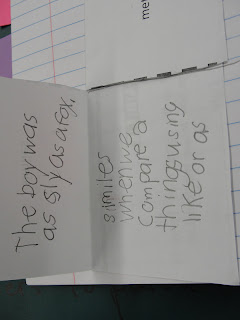 The boy was
as sly as a fox.
similes
when we
compare a
things using
like or as
me